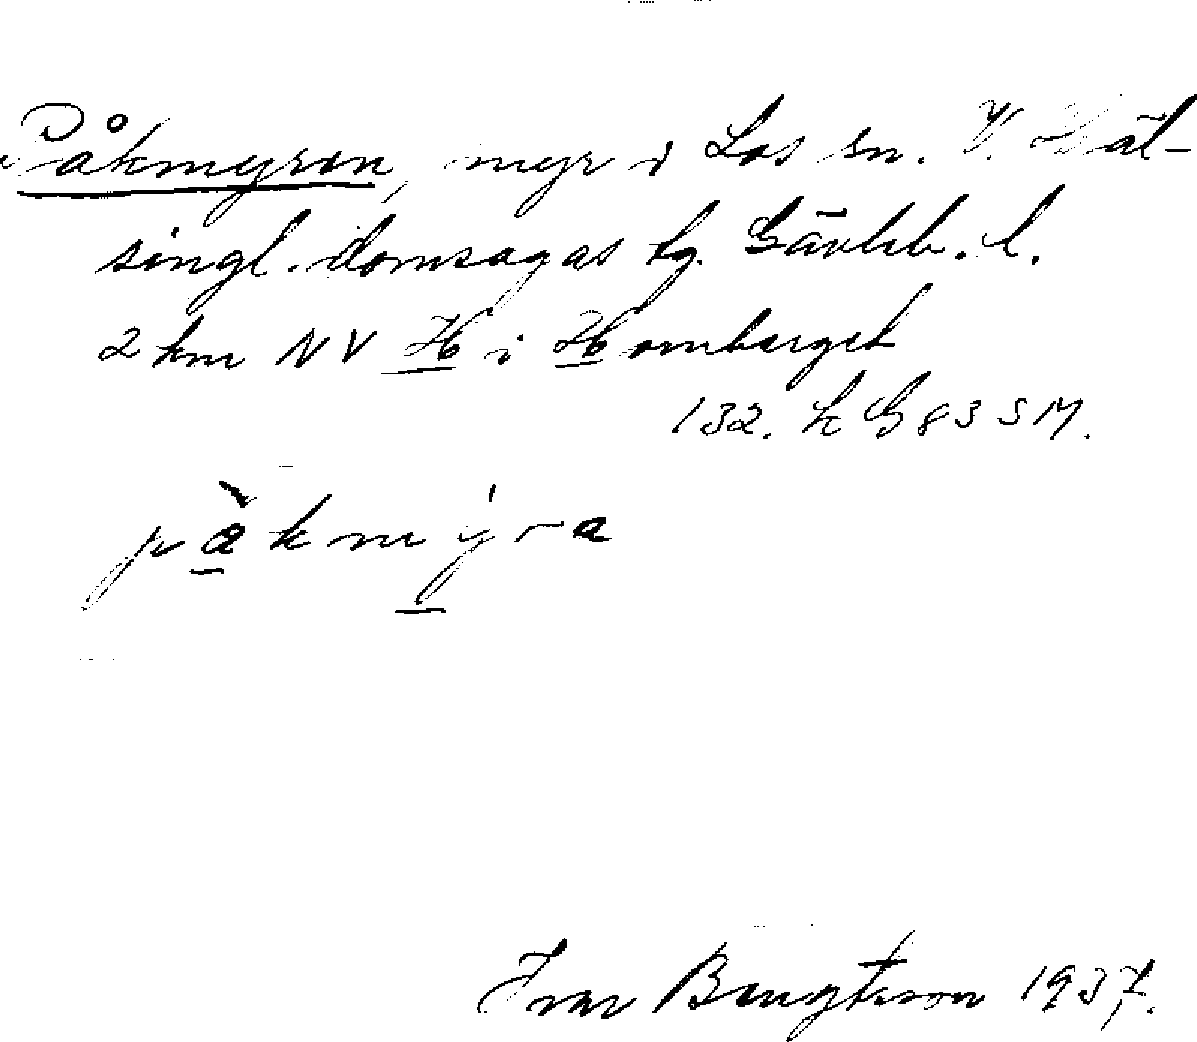 Påkmyren, myr i Los sn. V. Häl-
singl. domsagas tg. Gävleb. l.
2 km NV H i Homberget
132. k G 83 SM.
pàkmýra
Ivar Bengtsson 1937.